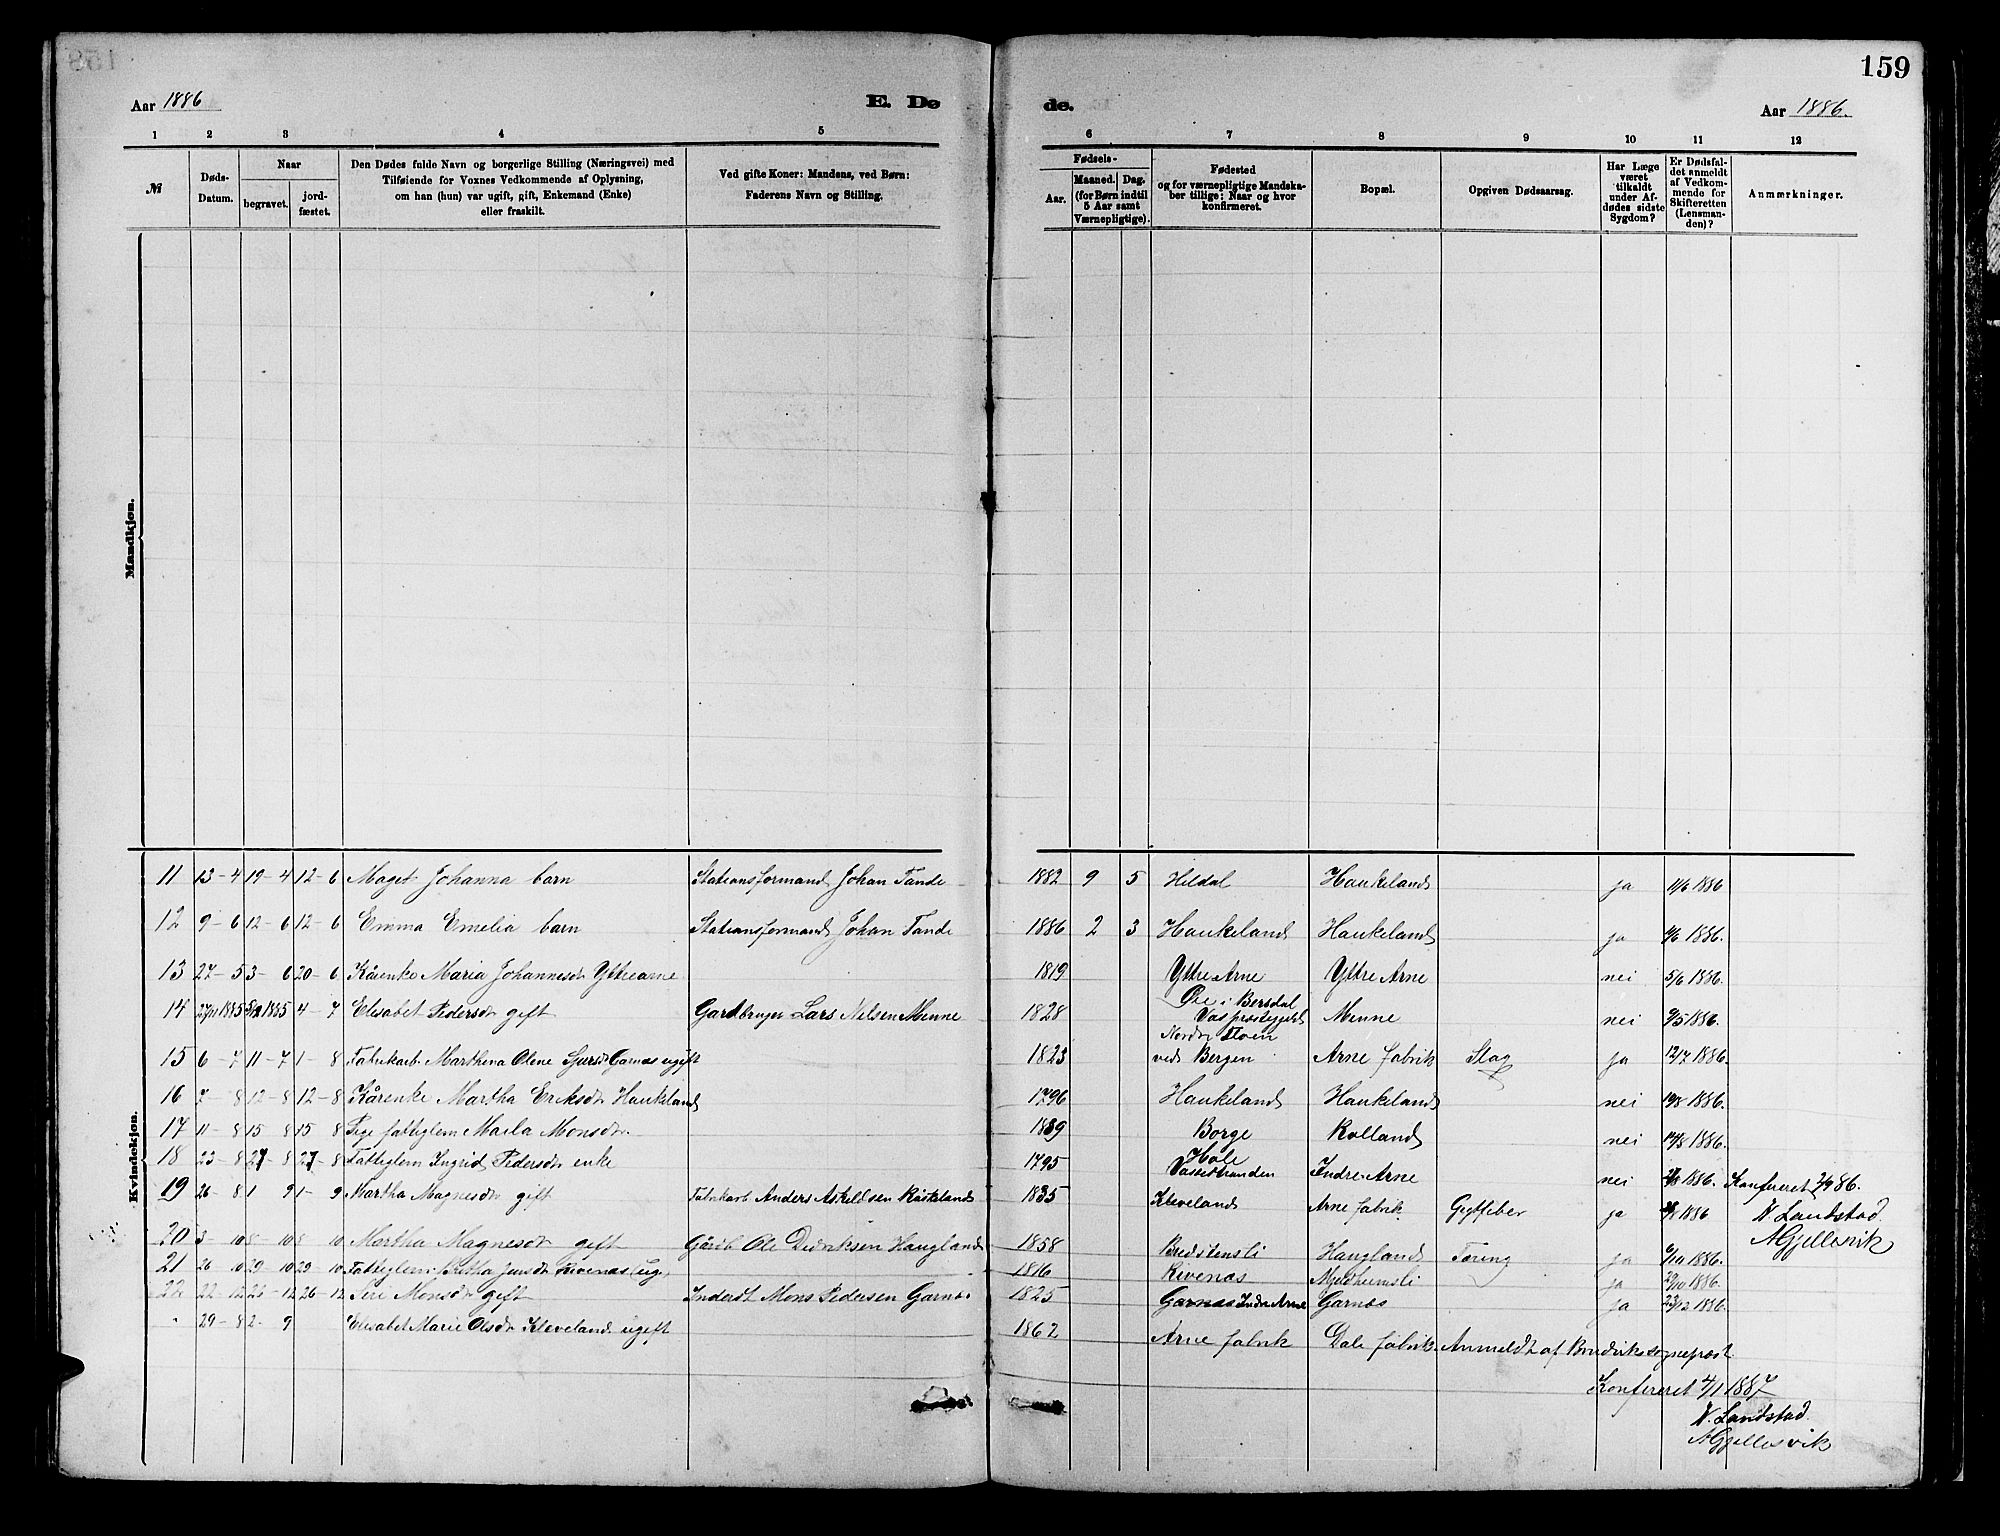 159
Aar 1886
E. Dø
de.
Aar 1886.
1 2 3 4 5 6 7 8 9 10 11 12
№
Døds-
Datum.
Naar
begravet.
jord-
fæstet.
Den Dødes fulde Navn og borgerlige Stilling (Næringsvei) med
Tilføiende for Voxnes Vedkommende af Oplysning,
om han (hun) var ugift, gift, Enkemand (Enke)
eller fraskilt.
Ved gifte Koner: Mandens, ved Børn:
Faderens Navn og Stilling.
Fødsels-
Aar.
Maaned. Dag.
(for Børn indtil
5 Aar samt
Værnepligtige).
Fødested
og for værnepligtige Mandska-
ber tillige: Naar og hvor
konfirmeret.
Bopæl.
Opgiven Dødsaarsag.
Har Læge
været
tilkaldt
under Af-
dødes sidste
Sygdom?
Er Dødsfal-
det anmeldt
af Vedkom-
mende for
Skifteretten
(Lensman-
den)?
Anmærkninger.
Mandkjøn.
Kvindekjøn.
11 13-4 19-4 12-6 Maget Johanna barn Stationsformand Johan Tande 1882 9 5 Hildal Haukeland ja 11/6 1886
12 9-6 12-6 12-6 Emma Emelia barn Stationsformand Johan Tande 1886 2 3 Haukeland Haukeland ja 1886.
13 27-5 3-6 20-6 Kårenke Maria Johannesdr Ytrearne 1819 Ytre Arne Ytre Arne nei 5/6 1886.
14 1885 1885 4-7 Elisabet Pedersdr gift Gardbruger Lars Nilsen Menne 1828 i Bersdal
Menne nei 9/5 1886.
15 6-7 11-7 1-8 Fabrikarb. Marthina Olene Garnæs ugift 1823 Nordre
ved Bergen Arne fabrik Slag ja 12/7 1886.
16 7-8 12-8 12-8 Kårenke Martha Eriksdr Haukeland 1796 Haukeland Haukeland nei 19/8 1886.
17 11-8 15-8 15-8 Pige fattiglem Marla Monsdr. 1839 Borge Kolland nei 17/8 1886.
18 23-8 27-8 27-8 Fattiglem Ingrid Pedersdr enke 1795 Hole
Vassstranden Indre Arne nei 1886. Konfereret 2/9 86.
19 26-8 1 9 1-9 Martha Magnesdr gift Fabrikarb Anders Askeldsen 1835 Kleveland Arne fabrik. ja 1886 N Landstad
20 3-10 8-10 8 10 Martha Magnesdr gift Gårdb Ole Didriksen Haugland 1858 Bredstensli Haugland Tæring ja 6/10 1886. A Gjellesvik
21 26 10 29-10 29 10 Fattiglem Britha Jensdr Rivenæs ug. 1816 Rivenæs ja 29/10 1886.
22 22-12 26-12 26-12 Siri Monsdr gift Inderst Mons Pedersen Garnæs 1825 Garnæs Indre Arne Garnæs ja 23/12 1886.
29-8 2-9 Elisabet Marie Olsdr Kleveland ugift 1862 Arne fabrik Dale fabrik. Anmeldt af sogneprest
Konfereret 4/1 1887
N. Landstad
A Gjellesvik